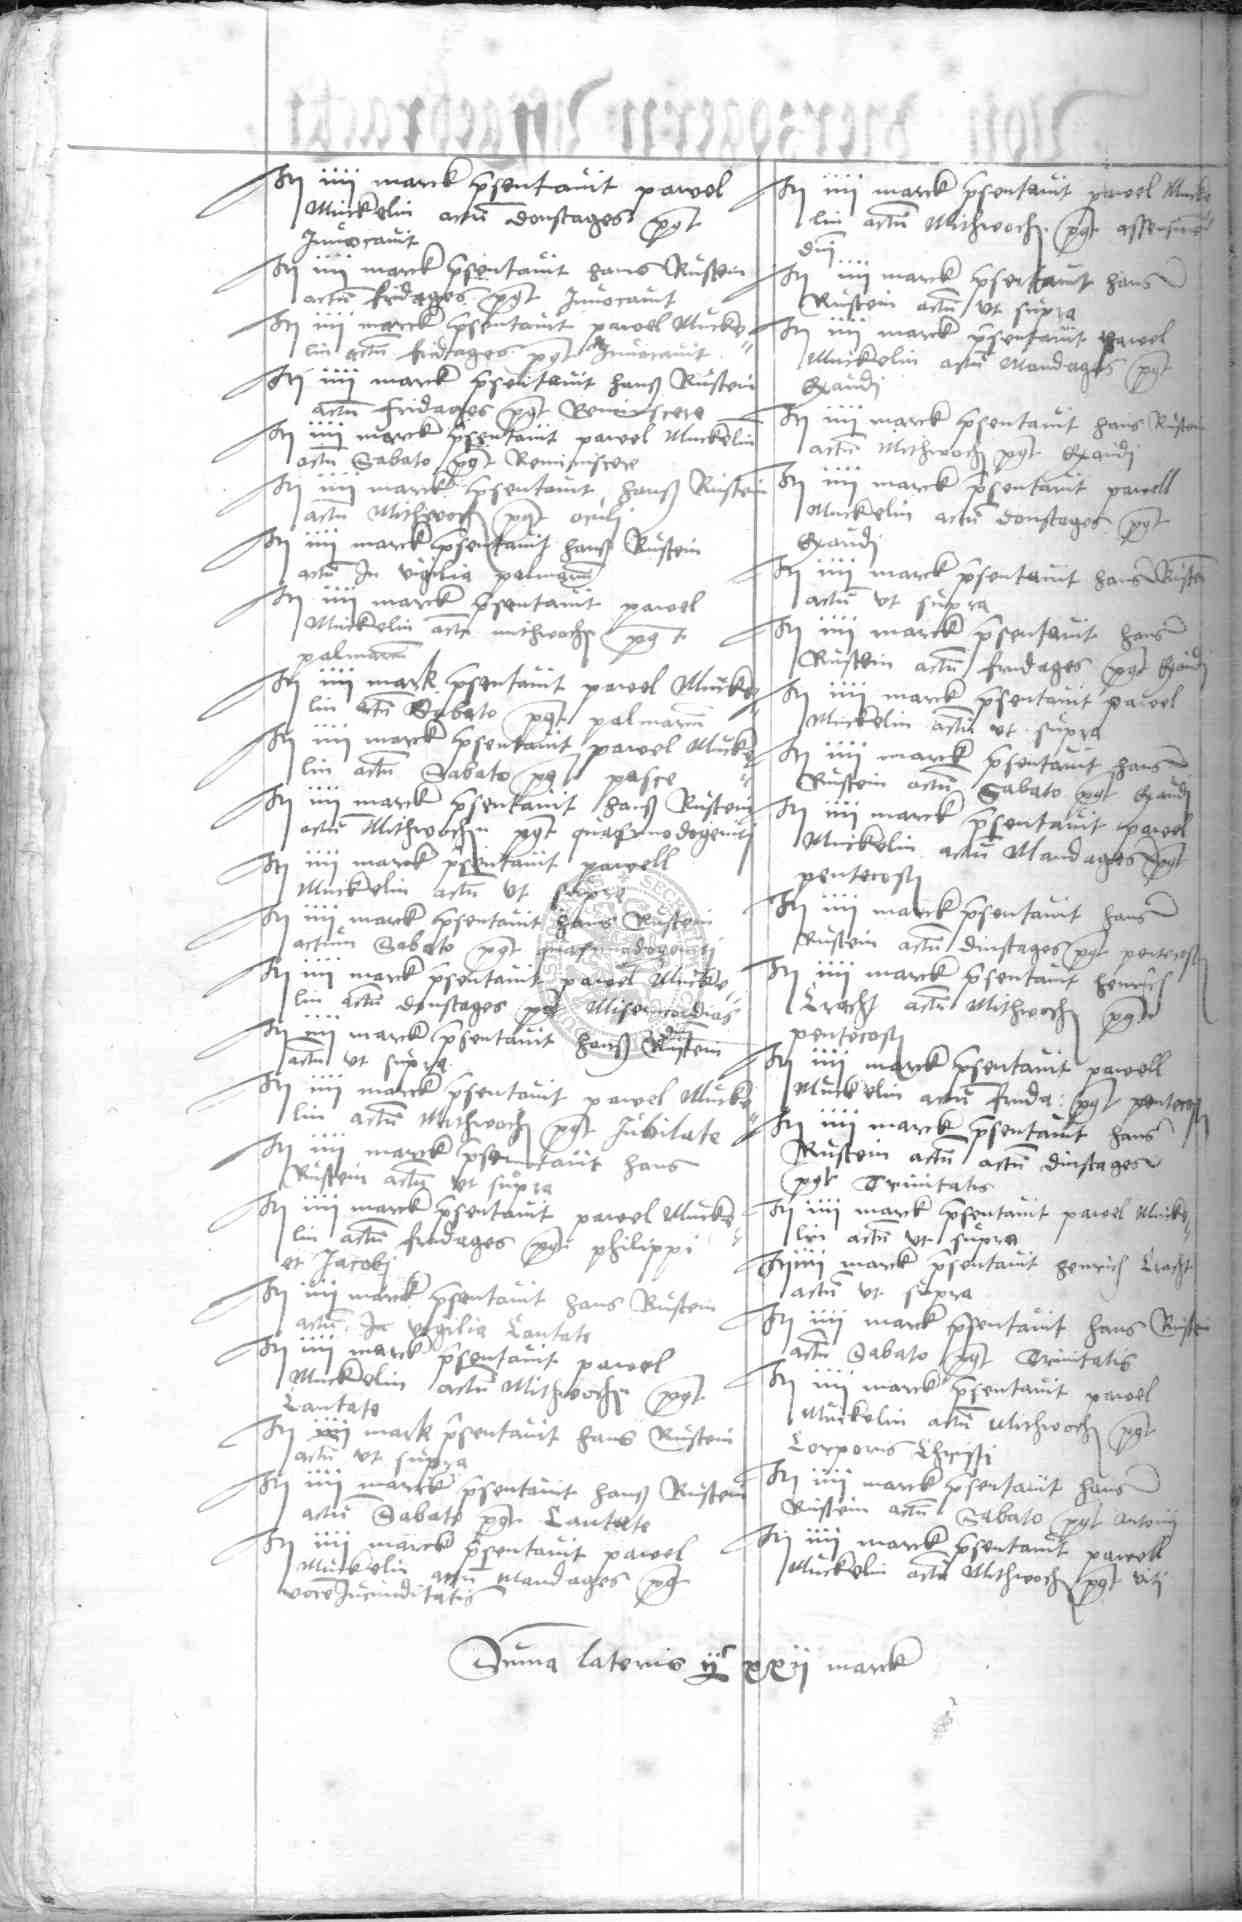 Itm iiij marck psentavit pawel
Muckelin actu donstages pqt
Invocavit
Itm iiij marck psentavit hans Rustein
actu fridages pqt Invocavit
Itm iiij marck psentavit pawel Mucke
lin actu fridages pqt Invocavit
Itm iiij marck psentavit hanß Rustein
actu fridages pqt Reminiscere
Itm iiij marck psentavit pawel Muckelin
actu Sabato pqt Reminiscere
Itm iiij marck psentavit hanß Rustein
actu Mithwoch pqt oculi
Itm iiij marck psentavit hanß Rustein
actu In vigilia palmarum
Itm iiij marck psentavit pawel
Muckelin actu mithwoch pqt
palmarum
Itm iiij mark psentavit pawel Mucke
lin actu Sabato pqt palmarum
Itm iiij marck psentavit pawel Mucke
lin actu Sabato pqt pasce
Itm iiij marck psentavit hanß Rustein
actu Mithwochen pqt quasimodogeniti
Itm iiij marck psentavit pawell
Muckelin actu vt supra
Itm iiij marck psentavit hans Rustein
actum Sabato pqt quasimodogeniti
Itm iiij marck psentavit pawel Mucke
lin actu donstages pqt Misericordias
dni
Itm iiij marck psentavit hanß Rustein
actu vt supra
Itm iiij marck psentavit pawel Mucke
lin actu Mithwoch pqt Jubilate
Itm iiij marck psentavit hans
Rustein actu vt supra
Itm iiij marck psentavit pawel Mucke
lin actu fridages pqt philippi
et Jacobi
Itm iiij marck psentavit hans Rustein
actu In vigilia Cantate
Itm iiij marck psentavit pawel
Muckelin actu Mithwochen pqt
Cantate
Itm iiij mark psentavit hans Rustein
actu vt supra
Itm iiij marck psentavit hanß Rustein
actu Sabato pqt Cantate
Itm iiij marck psentavit pawel
Muckelin actu Mandages pq
voce Jucunditatis
Itm iiij marck psentavit pawel Mucke
lin actu Mithwoch pqt assensionis
dni
Itm iiij marck psentavit hans
Rustein actu vt supra
Itm iiij marck psentavit pawel
Muckelin actu Mandages pqt
Exaudi
Itm iiij marck psentavit hans Rustein
actu Mithwoch pqt Exaudi
Itm iiij marck psentavit pawell
Muckelin actu donstages pqt
Exaudi
Itm iiij marck psentavit hans Rustein
actu vt supra
Itm iiij marck psentavit hans
Rustein actu fridages pqt Exaudi
Itm iiij marck psentavit pawel
Muckelin actu vt supra
Itm iiij marck psentavit hans
Rustein actu Sabato pqt Exaudi
Itm iiij marck psentavit pawel
Muckelin actu Mandages pqt
pentecosten
Itm iiij marck psentavit hans
Rustein actu dinstages pqt pentecosten
Itm iiij marck psentavit henrich
Cracht actu Mithwoch pqt
pentecosten
Itm iiij marck psentavit pawell
Muckelin actu frida pqt pentecosten
Itm iiij marck psentavit hans
Rustein actu actu dinstages
pqt Trinitatis
Itm iiij marck psentavit pawel Mucke
lin actu vt supra
Itm iiij marck psentavit henrich Cracht
actu vt supra
Itm iiij marck psentavit hans Rustein
actu Sabato pqt Trinitatis
Itm iiij marck psentavit pawel
Muckelin actu Mithwoch pqt
Corporis Christi
Itm iiij marck psentavit hans
Rustein actu Sabato pqt Antonij
Itm iiij marck psentavit pawell
Muckelin actu Mithwoch pqt viti
Suma lateris ijc xxij marck